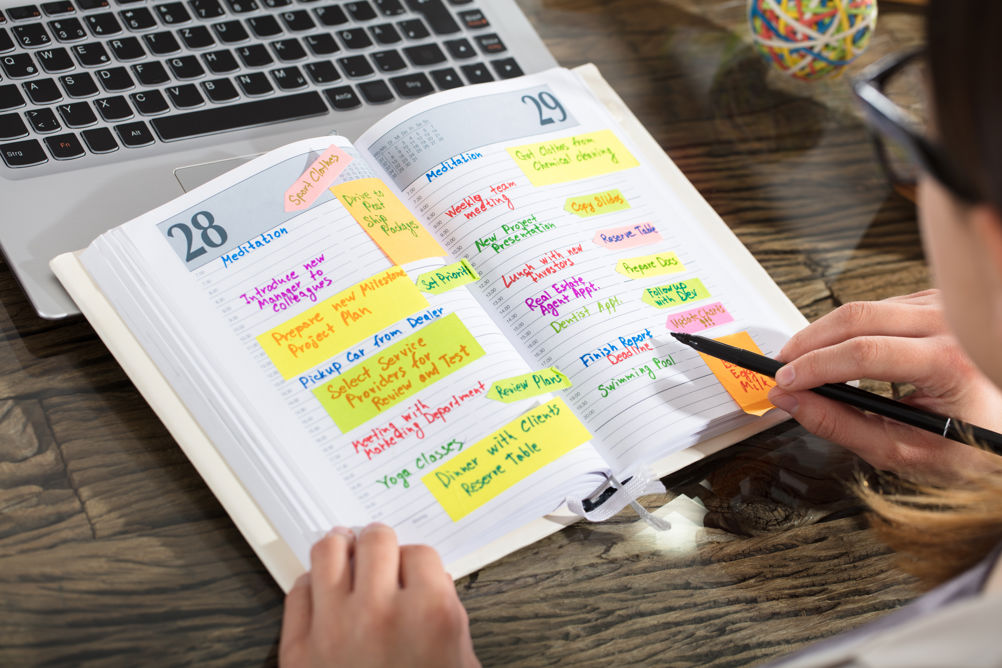 28
Meditation
Sport Clothes
Drive to
Post
Ship
Packages
Introduce new
Manager to
colleagues
Prepare new Milestone
Project Plan
Set Priorit
Pickup Car from Dealer
Select Service
Providers for
Review and Test
Meeting with
Marketing Department
Review Plans
Yoga Classes
Dinner with Clients
Reserve Table
29
Meditation
Get Clothes from
Chemical cleaning
Weekly team
meeting
Copy Slides
New Project
Presentation
Reserve Table
Lunch with new
Investors
Prepare Docs
Real Estate
Agent Appt.
Followup
with Dev
Dentist Appt.
Update
Finish Report
Deadline
Swimming Pool
Eggs
Milk